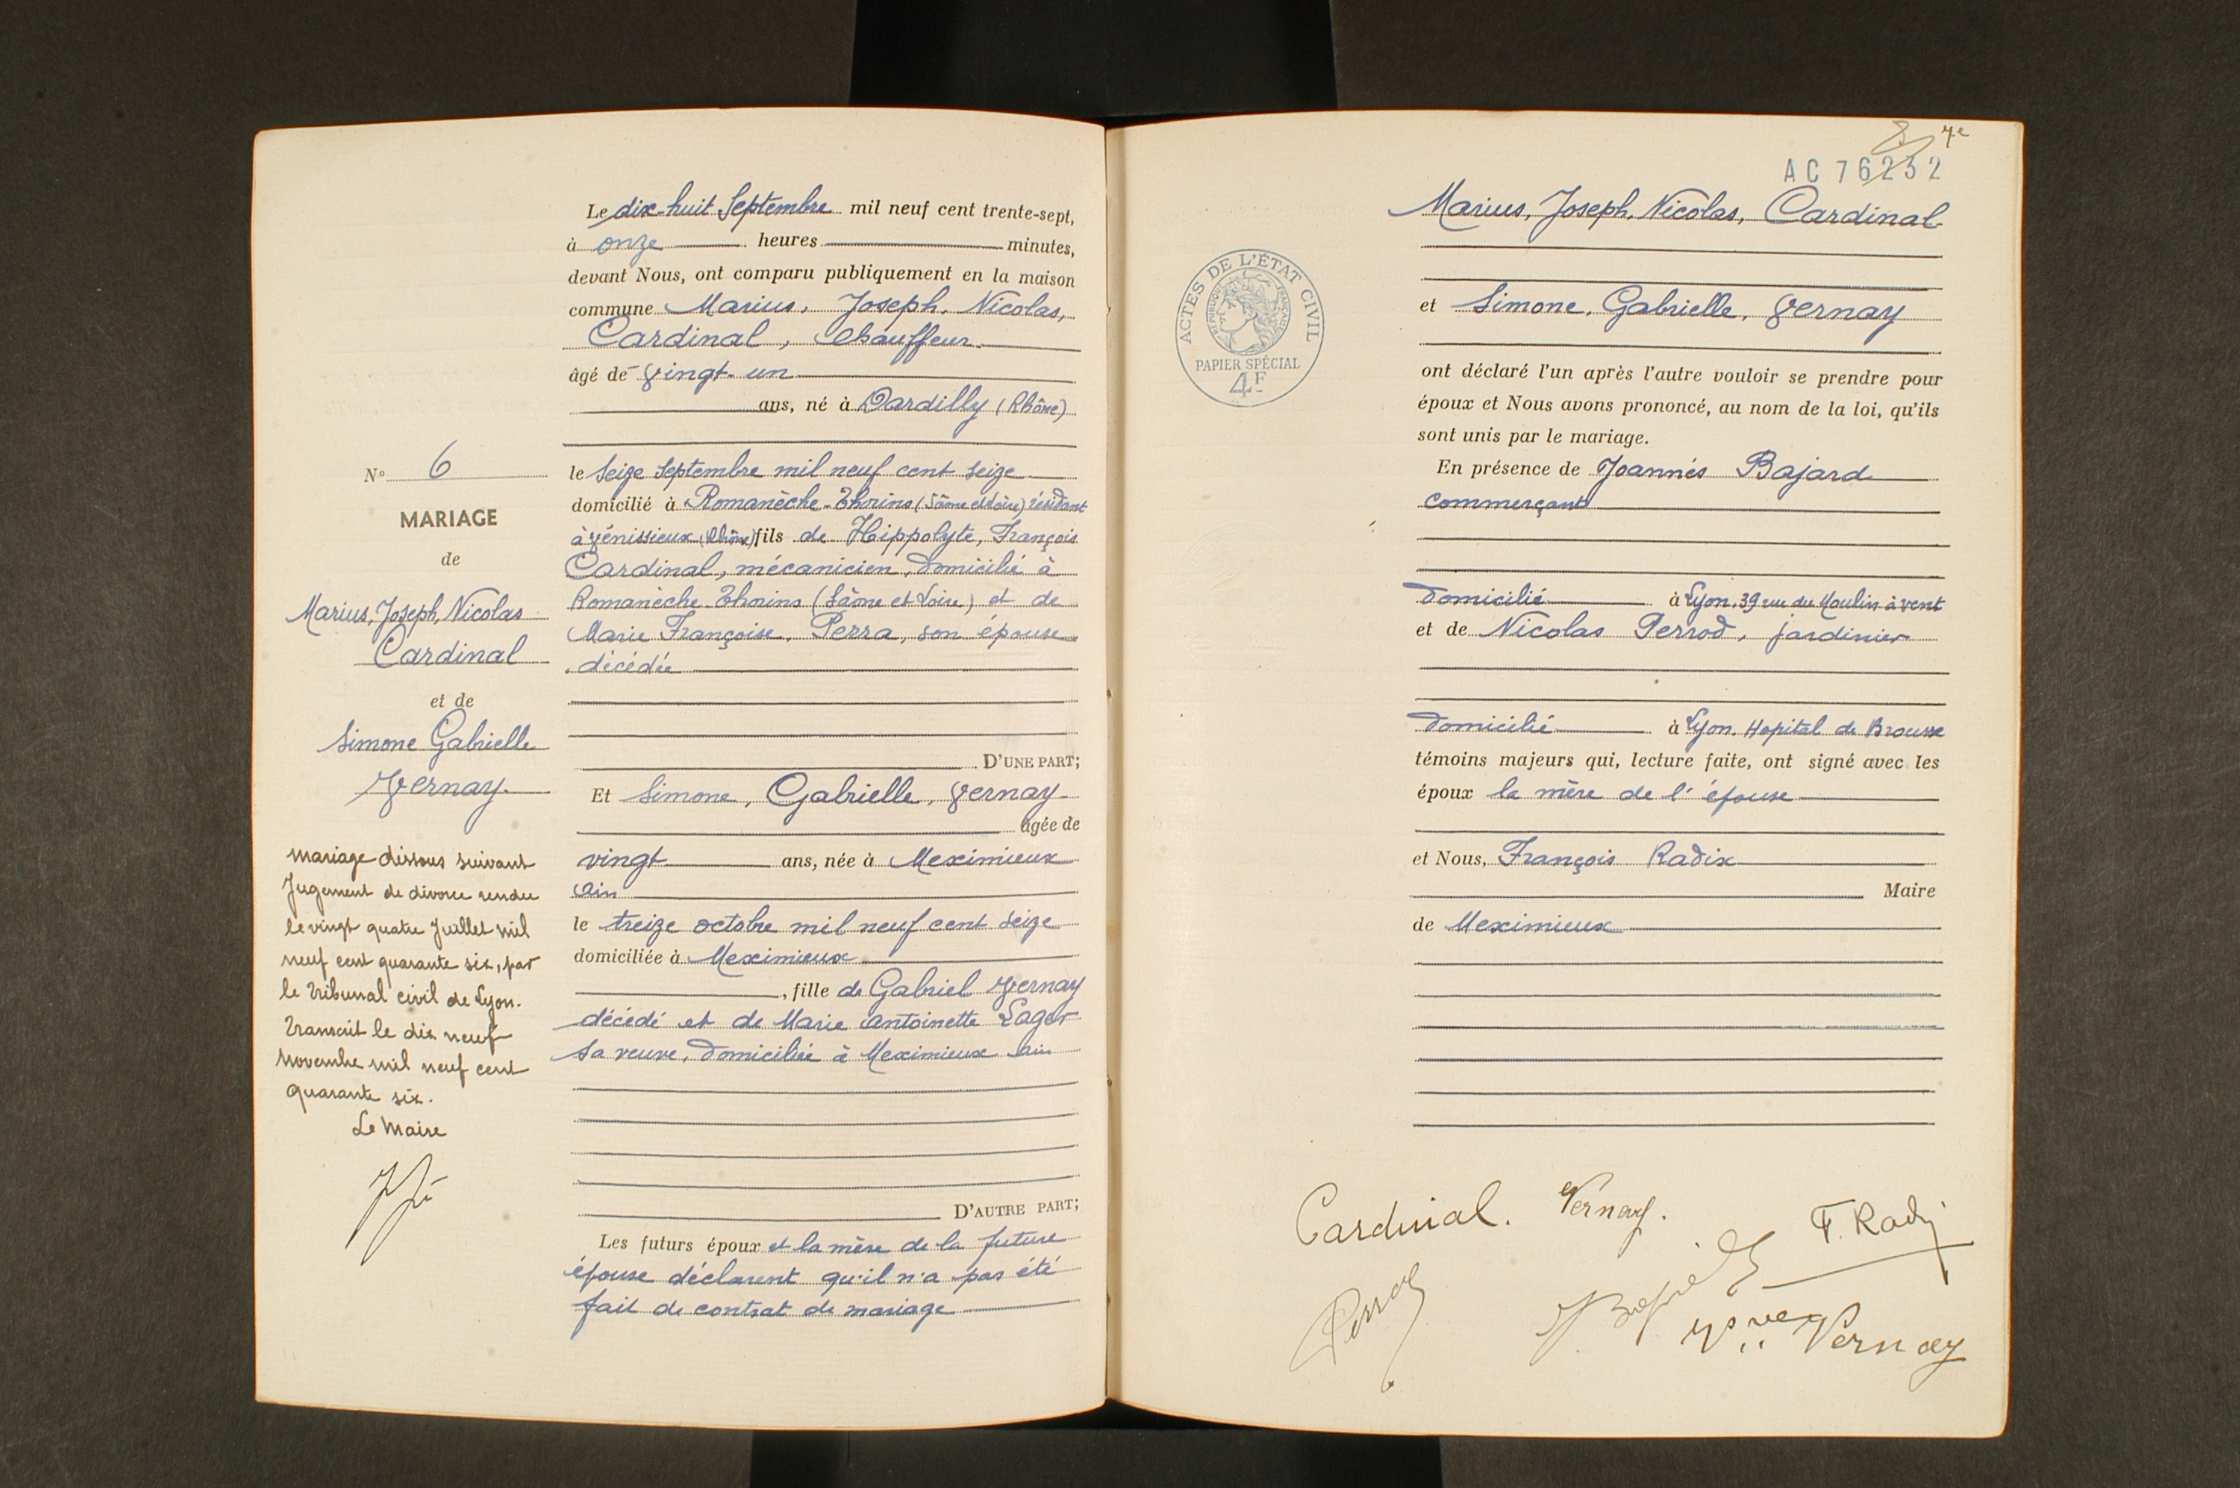 Le dix-huit Septembre mil neuf cent trente-sept,
à onze heures minutes,
devant Nous, ont comparu publiquement en la maison
commune Marius, Joseph, Nicolas,
Cardinal, Chauffeur
âgé de vingt-un
ans, né à Dardilly (Rhône)
le seize septembre mil neuf cent seize
domicilié à Romanèche-Thorins (Saône et Loire) résidant
à Vénissieux (Rhône) fils de Hippolyte, François
Cardinal, mécanicien, domicilié à
Romanèche-Thorins (Saône et Loire) et de
Marie Françoise, Perra, son épouse
décédée
D'UNE PART;
Et Simone, Gabrielle, Vernay
âgée de
vingt ans, née à Meximieux
Ain
le treize octobre mil neuf cent seize
domiciliée à Meximieux
, fille de Gabriel Vernay
décédé et de Marie Antoinette Lager
sa veuve, domiciliée à Meximieux Ain
D'AUTRE PART;
Les futurs époux et la mère de la future
épouse déclarent qu'il n'a pas été
fait de contrat de mariage
N° 6
MARIAGE
de
Marius, Joseph, Nicolas
Cardinal
et de
Simone Gabrielle
Vernay
mariage dissous suivant
Jugement de divorce rendu
le vingt quatre Juillet mil
neuf cent quarante six, par
le Tribunal civil de Lyon.
Transcrit le dix neuf
Novembre mil neuf cent
quarante six.
Le Maire
7e
AC 76232
Marius, Joseph, Nicolas, Cardinal
et Simone, Gabrielle, Vernay
ont déclaré l'un après l'autre vouloir se prendre pour
époux et Nous avons prononcé, au nom de la loi, qu'ils
sont unis par le mariage.
En présence de Joannés Bajard
commerçant
domicilié à Lyon, 39 rue du Moulin à vent
et de Nicolas Perrod, jardinier
domicilié à Lyon. Hopital de Brousse
témoins majeurs qui, lecture faite, ont signé avec les
époux la mère de l'épouse
et Nous, François Radix
Maire
de Meximieux
ACTES DE L'ÉTAT CIVIL
RÉPUBLIQUE FRANÇAISE
PAPIER SPÉCIAL
4F
Cardinal. Vernay.
F. Radix
Perrod
Vve Vernay